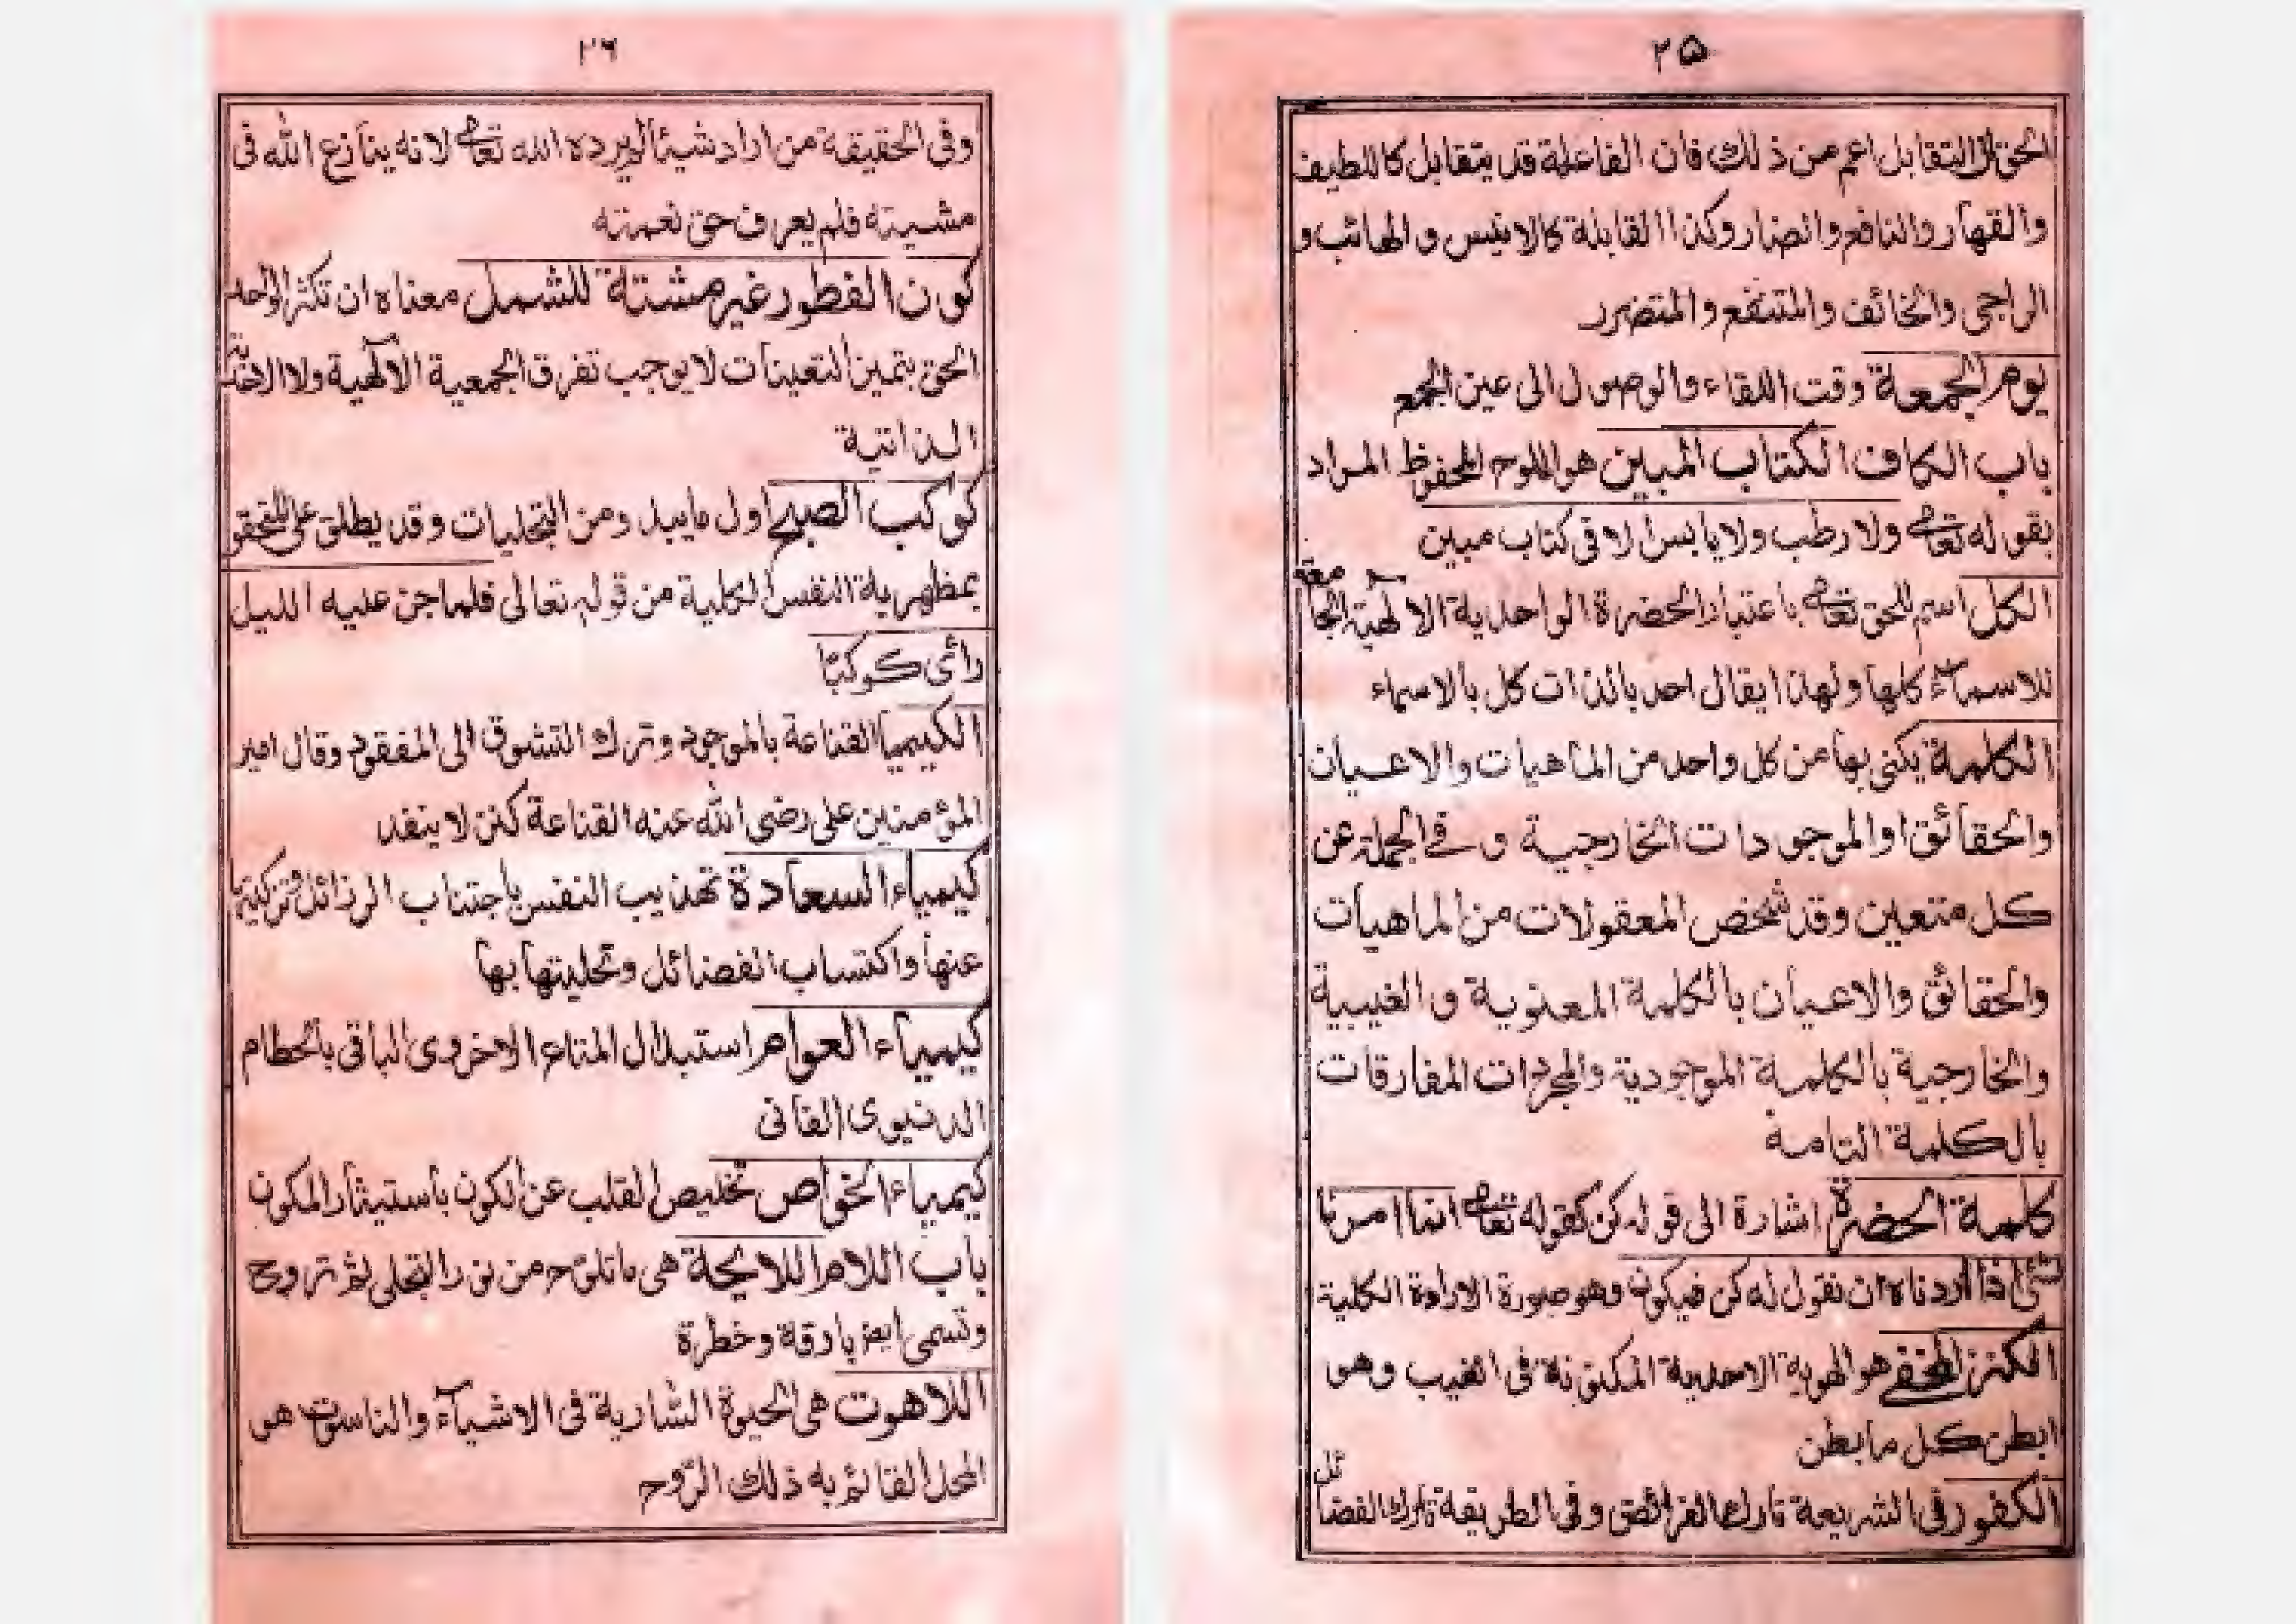 ٢٥
الحق لان التقابل اعم من ذلك فان الفاعلة قد يتقابل كاللطيف
والقهار والنافع والضار وكذا القابلة كالانيس والهائب و
الراجى والخائف والمنتفع والمتضرر
يوم الجمعة وقت اللقاء والوصول الى عين الجمع
باب الكاف الكتاب المبين هو اللوح المحفوظ المراد
بقوله تعالى ولا رطب ولا يابس الا فى كتاب مبين
الكل اسم للحق تعالى باعتبار الحضرة الواحدية الالهية الجامعة
للاسماء كلها ولهذا يقال احد بالذات كل بالاسماء
الكلمة يكنى بها عن كل واحد من الماهيات والاعيان
والحقائق او الموجودات الخارجية وفى الجملة عن
كل متعين وقد تخص المعقولات من الماهيات
والحقائق والاعيان بالكلمة المعنوية و الغيبية
والخارجية بالكلمة الموجودية والمجردات المفارقات
بالكلمة التامة
كلمة الحضرة اشارة الى قوله كن كقوله تعالى انما امرنا
شئ اذا اردناه ان نقول له كن فيكون وهو صورة الارادة الكلية
الكنز المخفى هو الهوية الاحدية المكنونة فى الغيب وهو
ابطن كل ما بطن
الكفور فى الشريعة تارك الفرائض وفى الطريقة تارك الفضائل
٢٦
وفى الحقيقة من اراد شيئا لم يرده الله تعالى لانه ينازع الله فى
مشيته فلم يعرف حق نعمته
كون الفطور غير مشتة للشمل معناه ان تكثر الواحد
الحق بتمين التعينات لا يوجب تفرق الجمعية الالهية ولا الاحدية
الذاتية
كوكب الصبح اول ما يبدو من التجليات وقد يطلق على المتحقق
بمظهرية النفس الكلية من قوله تعالى فلما جن عليه الليل
رائى كوكبًا
الكيميا القناعة بالموجود وترك التشوق الى المفقود وقال امير
المؤمنين على رضى الله عنه القناعة كنز لا ينفد
كيمياء السعادة تهذيب النفس باجتناب الرذائل وتزكيتها
عنها واكتساب الفضائل وتحليتها بها
كيمياء العوام استبدال المتاع الاخروى الباقى بالحطام
الدنيوى الفانى
كيمياء الخواص تخليص القلب عن الكون باستيثار المكون
باب اللام اللايحة هى ما تلوح من نور التجلى ثم تروح
وتسمى ايضا بارقة وخطرة
اللاهوت هى الحيوة السارية فى الاشياء والناسوت هو
المحل القائم به ذلك الروح